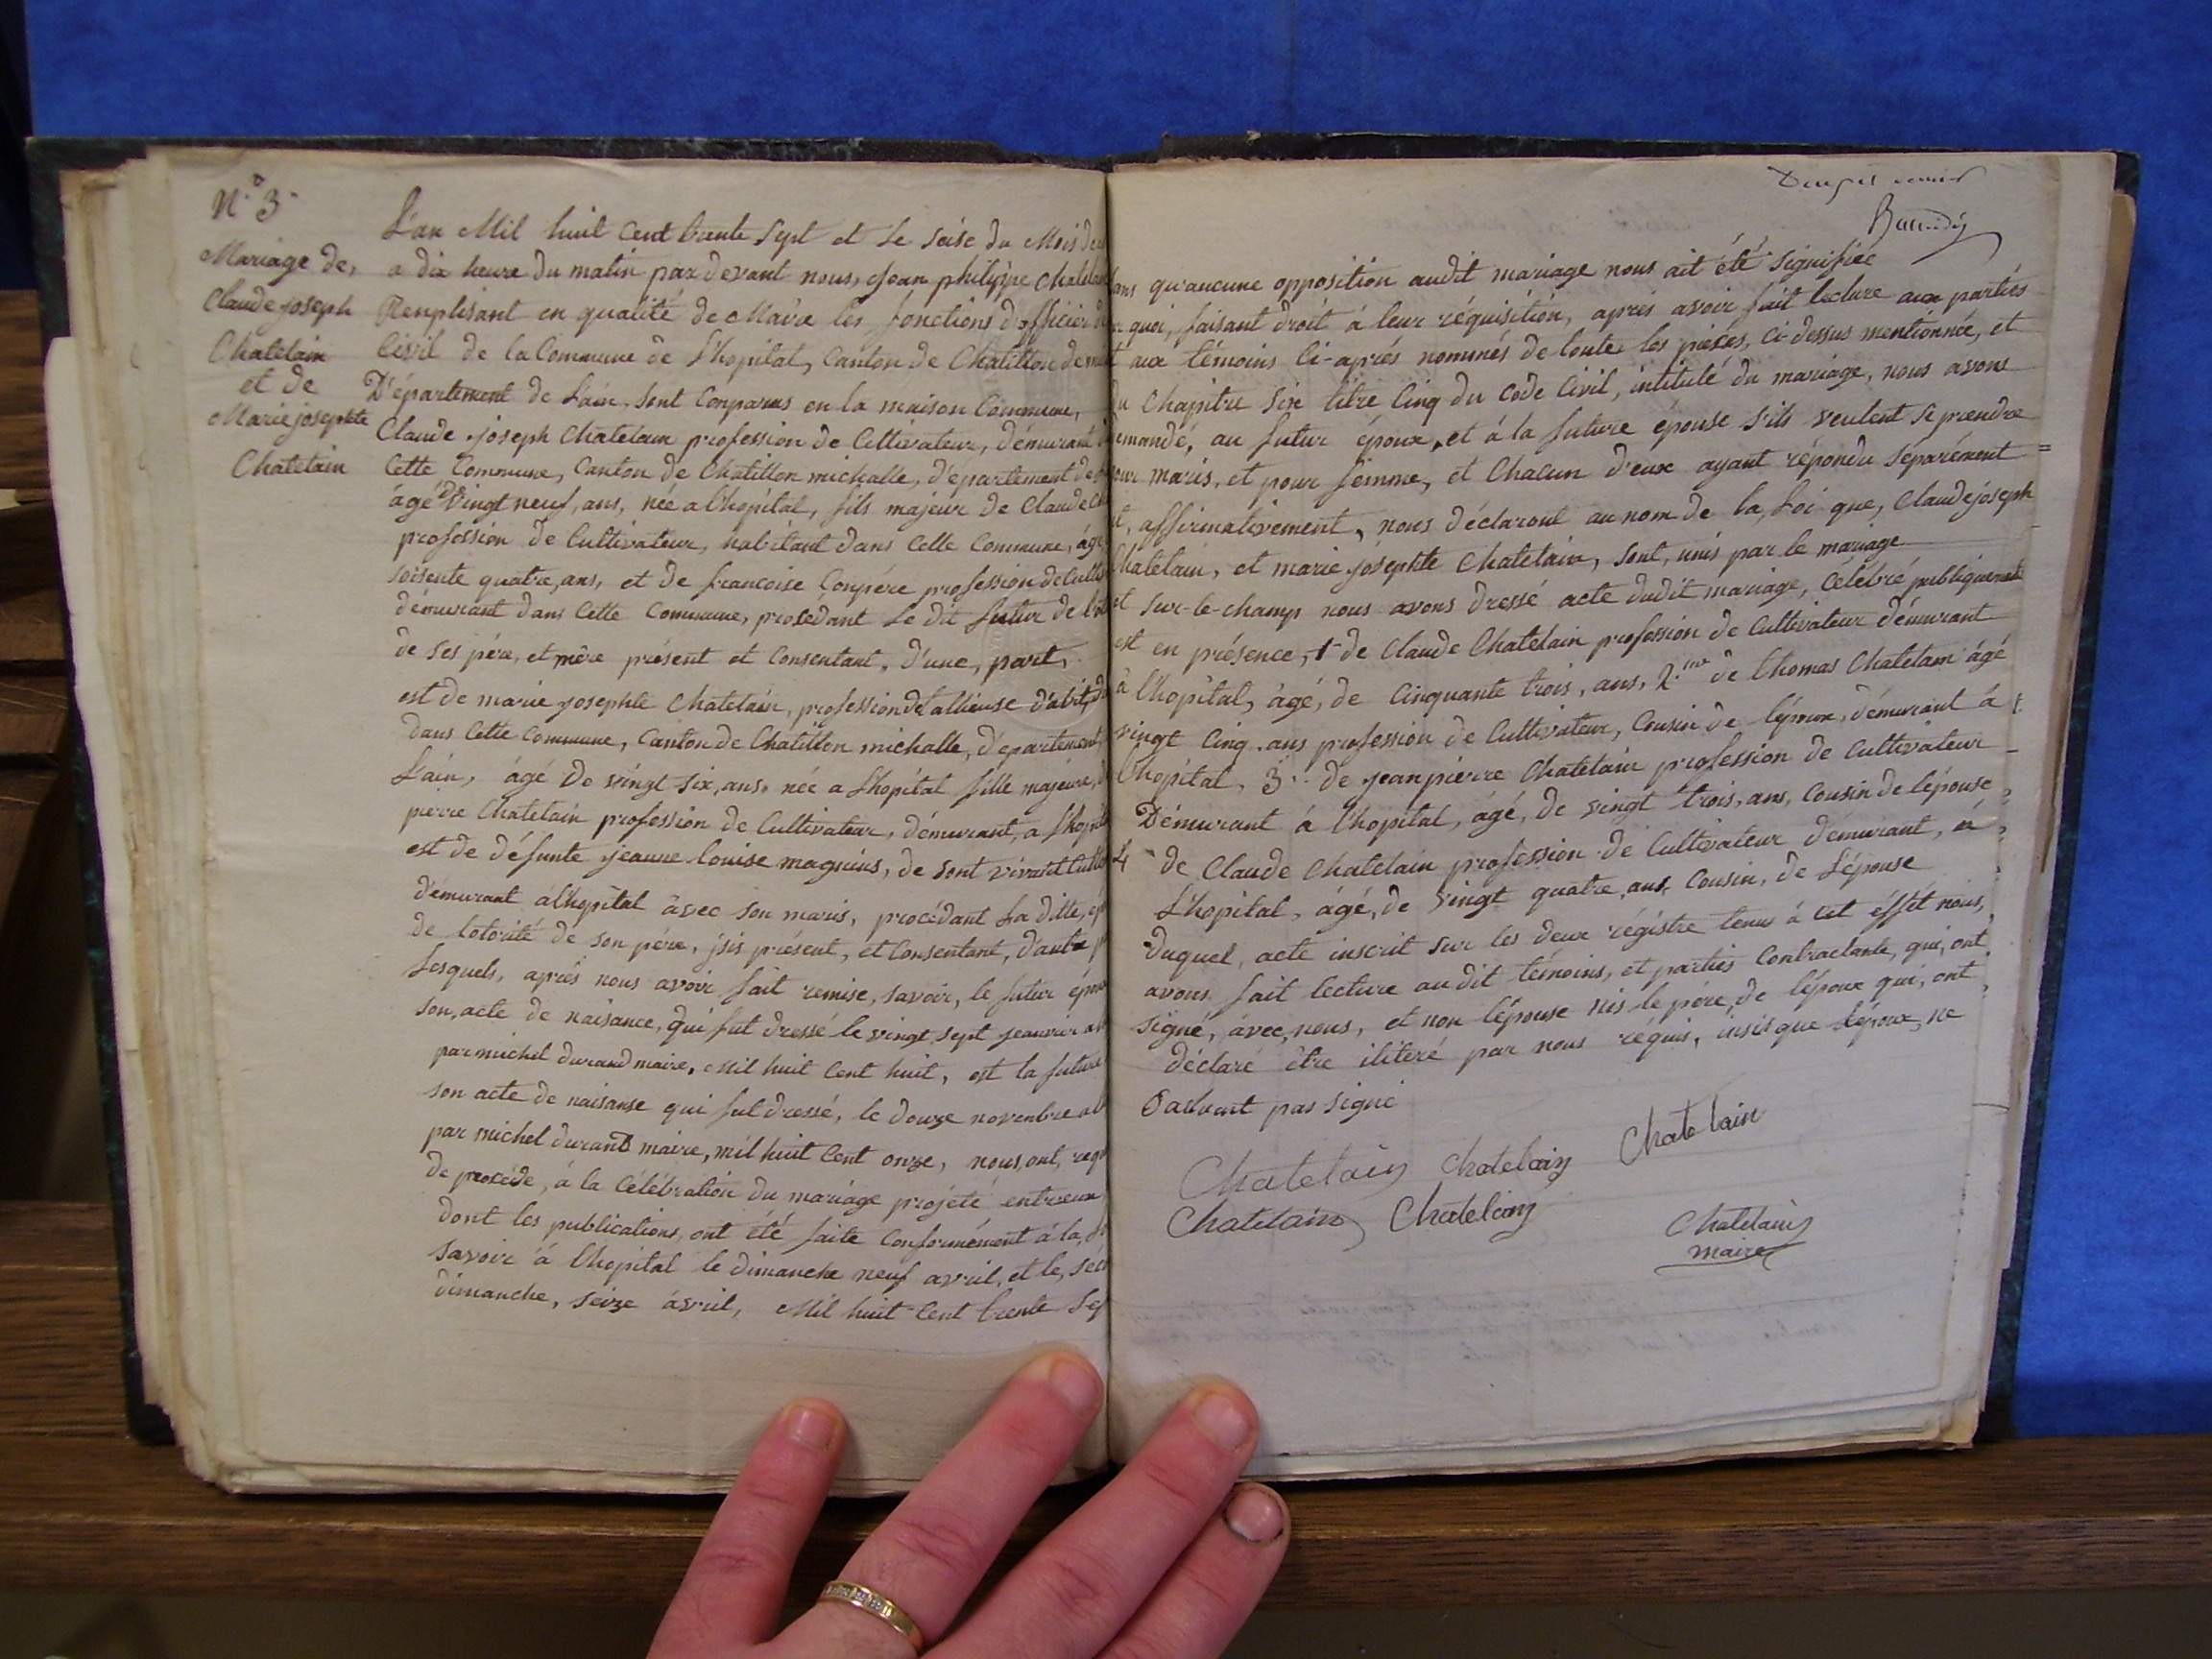 N.° 3
Mariage de,
Claude joseph
Chatelain
et de
Marie josephte
Chatelain
L'an Mil huit Cent trente Sept et le Seise du Mois de
a dix heure du matin par devant nous, Jean philippe Chatelain
Remplisant en qualité de Maire les fonctions d'officier d
Civil de la Commune de L'hopital, Canton de Chatillon de mi
Département de L'ain. Sont Conparus en la maison Commune,
Claude joseph Chatelain profession de Cultivateur, démurant
Cette Commune, Canton de Chatillon michalle, département de
âgé de vingt neuf, ans, née a L'hopital, fils majeur de Claude C
profession de Cultivateur, habitant dans Cette Commune, âgé
soisente quatre, ans, et de francoise Conpére profession de Cult
démurant dans Cette Commune, procedant Le dit futur de l
de Ses pére, et mère présent et Consentant, d'une, part,
est de marie josephte Chatelain, profession de tallieuse d'abit, d
dans Cette Commune, Canton de Chatillon michalle, département
L'ain, âgé de vingt six, ans, née a L'hopital fille majeure, d
pierre Chatelain profession de Cultivateur, démurant, a L'hopit
est de défunte jeanne louise magnins, de sont vivant Cult
démurant à L'hopital avec son maris, procédant La ditte, ép
de lotorité de son pére, jsis présent, et Consentant, d'autre p
Lesquels, aprés nous avoir fait remise, savoir, le futur épou
son, acte de naisance, qui fut dressé le vingt Sept jeanvier
par michel durand maire, Mil huit Cent huit, est la future
son acte de naisanse qui fut dressé, le douze novembre
par michel durand maire, mil huit Cent onze, nous, ont, requ
de procéde, à la Célébration du mariage projété entreeux
dont les publications, ont été faite Conformément à la,
Savoir à L'hopital le dimanche neuf avril, et le, Séc
dimanche, Seize avril, Mil huit Cent trente Sep
ans qu'aucune opposition audit mariage nous ait été Signifiée
quoi, faisant droit à leur réquisition, aprés avoir fait lecture aux parties
aux témoins Ci-aprés nommés de toute les piéces, Ci-dessus mentionnée, et
du Chapitre Six titre Cinq du Code Civil, intitulé du mariage, nous avons
emandé, au futur époux, et à la future épouse s'ils veulent se prendre
our maris, et pour femme, et Chacun d'eux ayant répondu Séparément =
t, affirmativement, nous déclaront au nom de la Loi que, Claude joseph
Chatelain, et marie joséphte Chatelain, Sont, unis par le mariage
et Sur-le-champ nous avons dressé acte dudit mariage, Célébré publiquement
est en présence, 1 de Claude Chatelain profession de Cultivateur démurant
à L'hopital, âgé, de Cinquante trois, ans, 2.me de thomas Chatelain âgé
vingt Cinq. ans profession de Cultivateur, Cousin de l'époux, démurant à
L'hopital, 3 de jean pierre Chatelain profession de Cultivateur
Démurant à L'hopital, âgé, de vingt trois, ans, Cousin de l'épouse
4 de Claude Chatelain profession de Cultivateur démurant, à
L'hopital, âgé, de vingt quatre, ans, Cousin, de L'épouse
Duquel, acte inscrit Sur les deux régistre tenus à Cet éffét nous,
avons fait lecture audit témoins, et parties Contractante, qui, ont
Signé, avec, nous, et non l'épouse nis le pére, de l'époux qui, ont
déclaré être iliteré par nous réquis, insis que L'époux, ne
Sachant pas Signé
Chatelain Chatelain Chatelain
Chatelain Chatelain Chatelain
maire